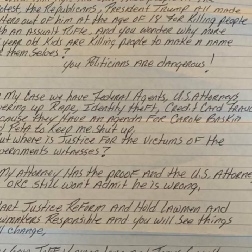 test the Republicans, President Trump still made
Hero out of him at the age of 18 for killing people
th an assault Rifle. And you wonder why more
year old Kids are Killing people to make a name
them Selves?
you Politicians are dangerous!
my case we have Federal Agents, U.S. Attorneys
vering up Rape, Identity theft, Credit Card Fraud
cause they Have an agenda for Carole Baskin
Peta to Keep me Shut up,
ut where is Justice For the Victums of the
vernments witnesses?
My Attorney Has the PROOF and the U.S. Attorney
OKC still won't Admit he is wrong,
tart Justice Reform and Hold Lawmen and
wmakers Responsible And you will see things
change,